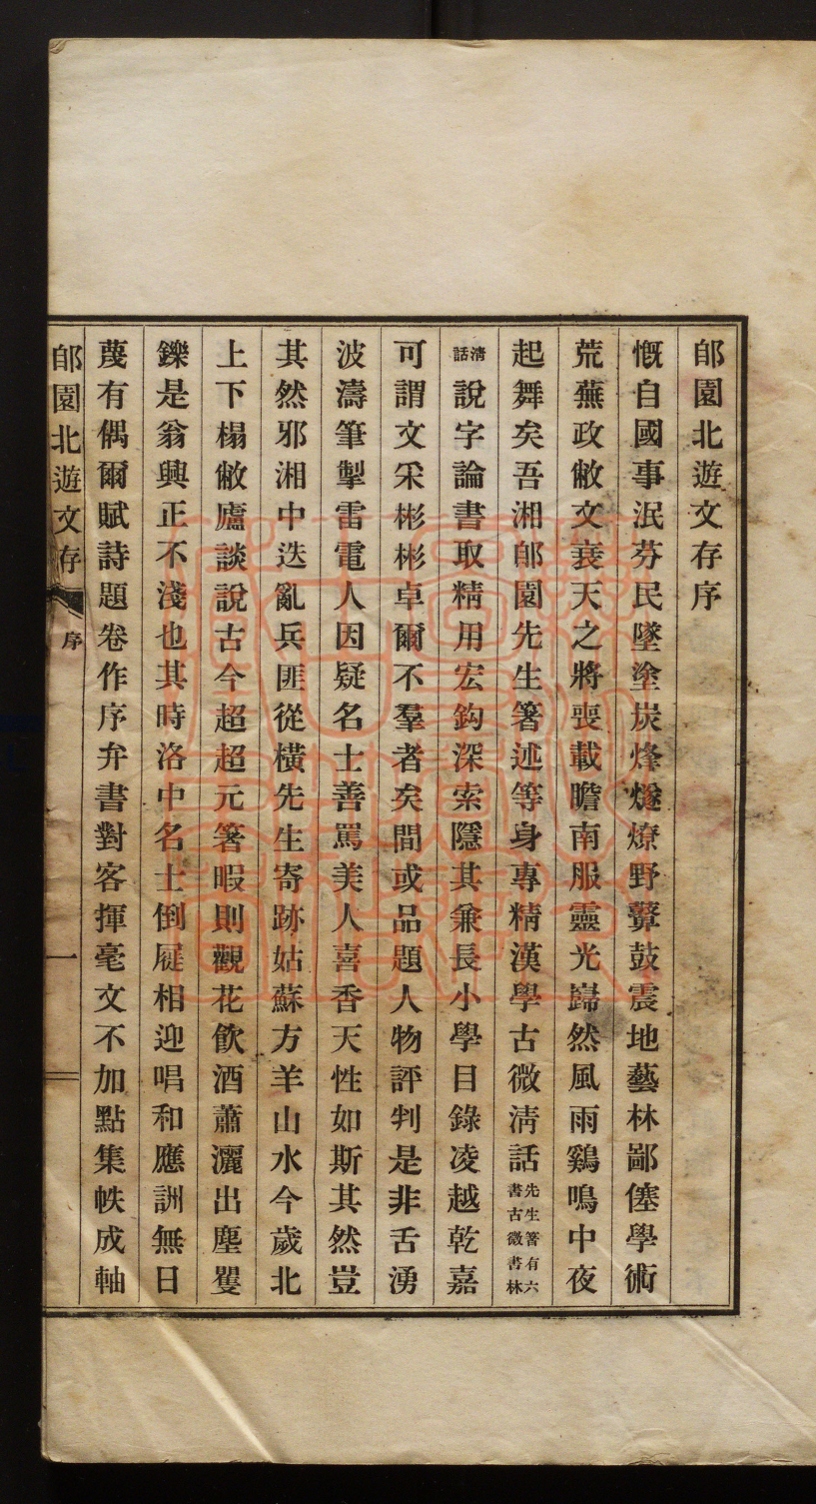 郋園北遊文存序
慨自國事泯芬民墜塗炭烽燧燎野鼙鼓震地藝林鄙僿學術
荒蕪政敝文衰天之將喪載瞻南服靈光巋然風雨鷄鳴中夜
起舞矣吾湘郋園先生箸述等身專精漢學古微淸話先生箸有六書古微書林
淸話說字論書取精用宏鈎深索隱其兼長小學目錄凌越乾嘉
可謂文采彬彬卓爾不羣者矣間或品題人物評判是非舌湧
波濤筆掣雷電人因疑名士善罵美人喜香天性如斯其然豈
其然邪湘中迭亂兵匪從橫先生寄跡姑蘇方羊山水今歲北
上下榻敝廬談說古今超超元箸暇則觀花飮酒蕭灑出塵矍
鑠是翁興正不淺也其時洛中名士倒屣相迎唱和應詶無日
蔑有偶爾賦詩題卷作序弁書對客揮毫文不加點集帙成軸
郋園北遊文存 序 一